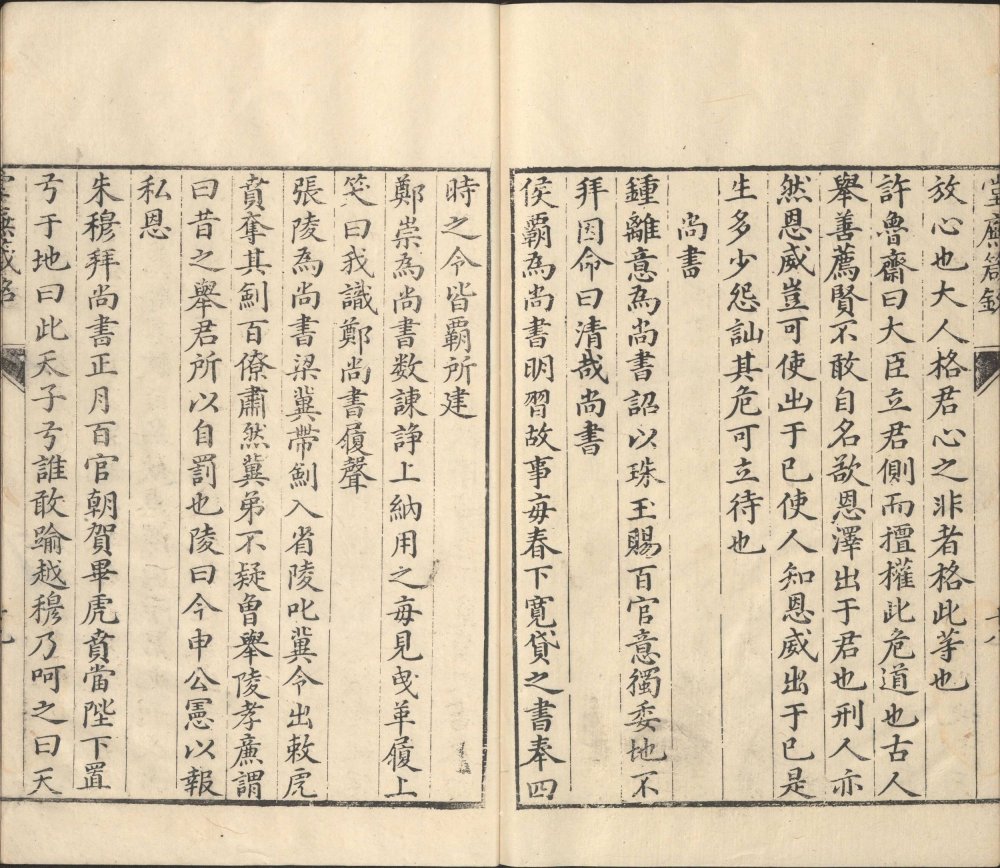 放心也大人格君心之非者格此等也
許魯齋曰大臣立君側而擅權此危道也古人
舉善薦賢不敢自名欲恩澤出于君也刑人亦
然恩威豈可使出于已使人知恩威出于已是
生多少怨訕其危可立待也
尚書
鍾離意為尚書詔以珠玉賜百官意獨委地不
拜因命曰清哉尚書
侯覇為尚書明習故事毎春下寛貸之書奉四
時之令皆覇所建
鄭崇為尚書数諫諍上納用之毎見曵革履上
笑曰我識鄭尚書履聲
張陵為尚書梁冀帶劍入省陵叱冀令出敕虎
賁奪其劍百僚肅然冀弟不疑曾舉陵孝廉謂
曰昔之舉君所以自罰也陵曰今申公憲以報
私恩
朱穆拜尚書正月百官朝賀畢虎賁當陛下置
弓于地曰此天子弓誰敢踰越穆乃呵之曰天